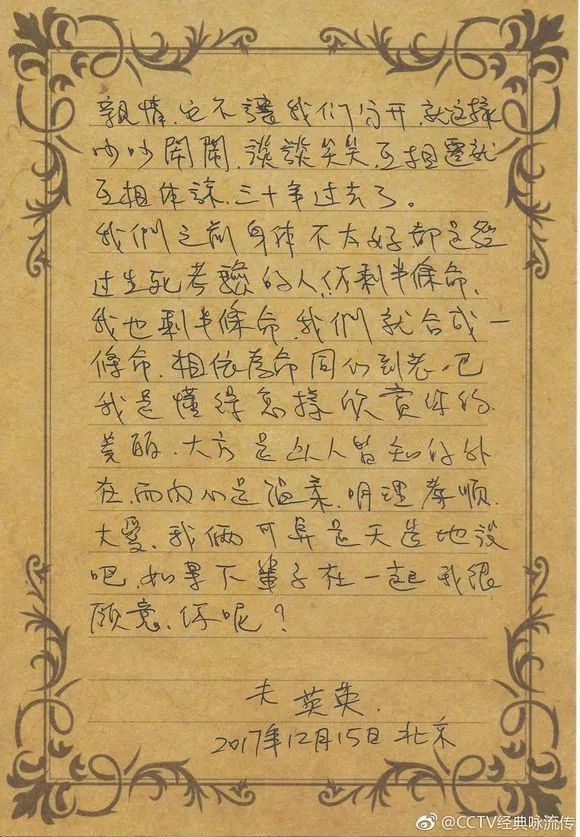 親情,它不讓我们分开,就这樣
吵吵鬧鬧,談談笑笑,互相遷就
互相体諒,三十年过去了。
我們之前身体不太好都是經
过生死考驗的人,你剩半條命,
我也剩半條命,我們就合成一
條命,相依為命同行到老吧
我是懂得怎樣欣賞你的
美丽、大方是人人皆知的外
在而内心是温柔,明理孝順,
大愛,我倆可算是天造地設
吧,如果下輩子在一起我很
願意,你呢?
夫 英英.
2017年12月15日 北京
@CCTV经典咏流传